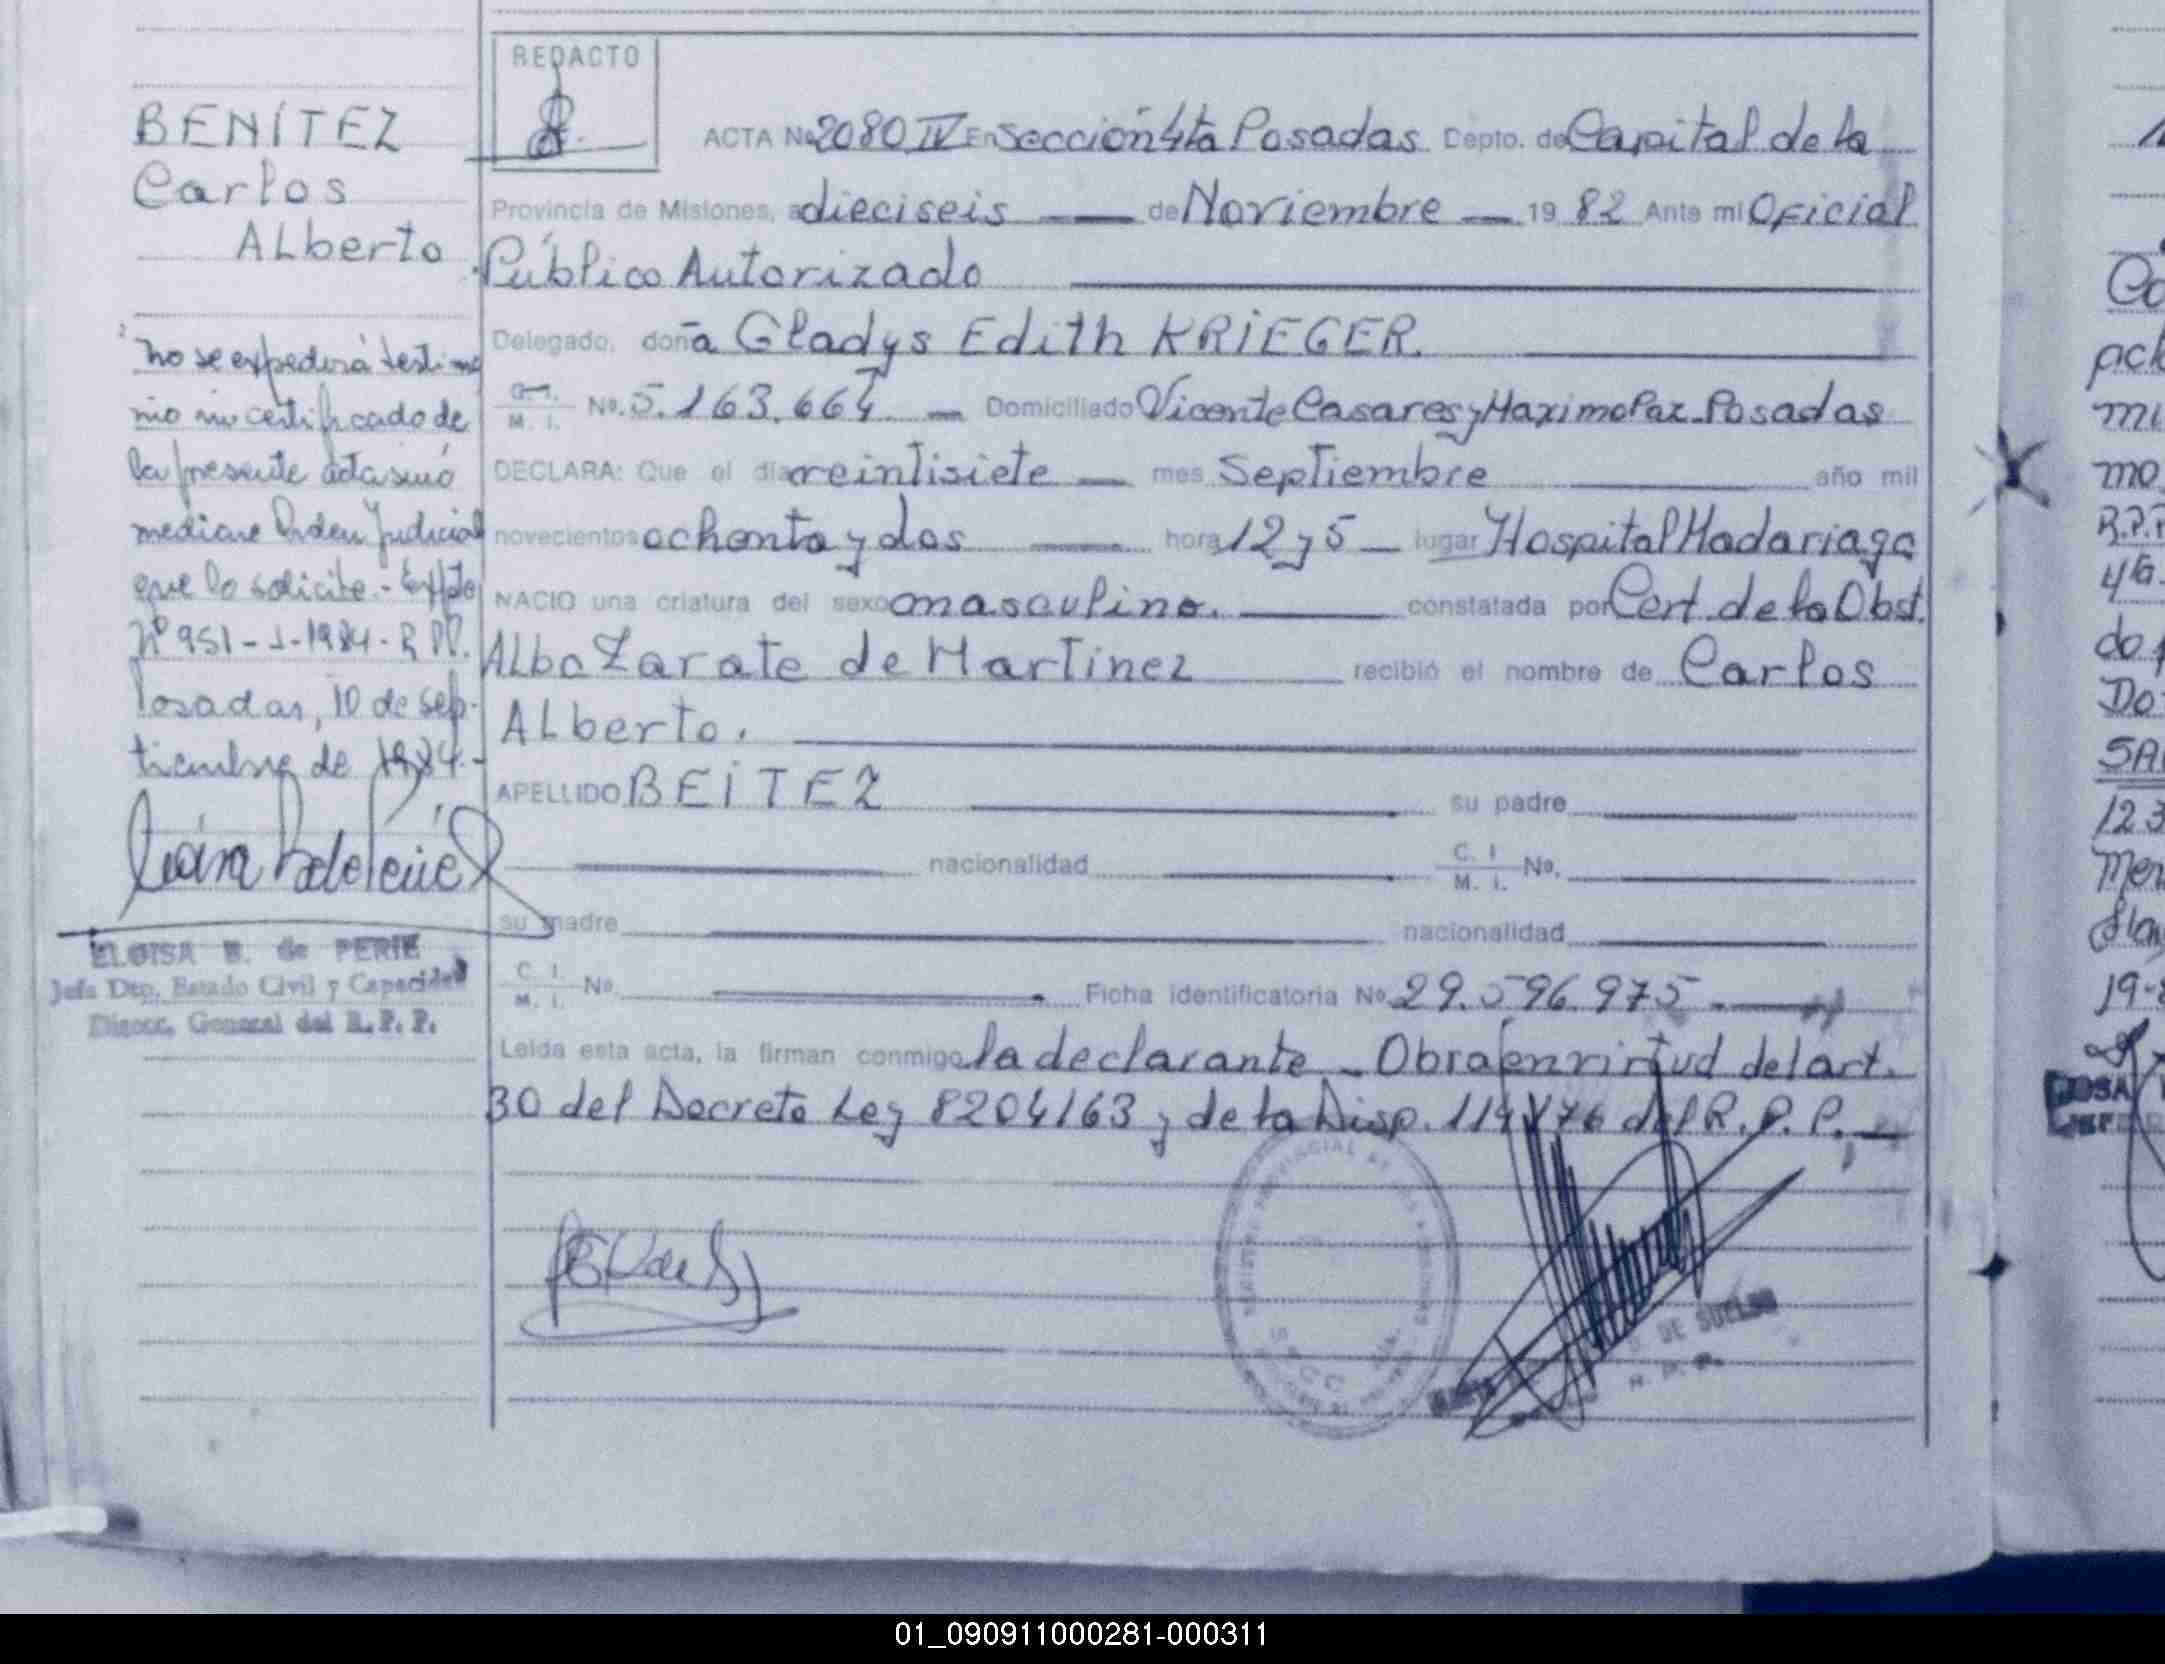 REDACTO
BENÍTEZ
Carlos
ALberto
ACTA No 2080 IV En Sección 4ta Posadas Depto. de Capital de la
Provincia de Misiones, a dieciseis de Noviembre 19 82 Ante mi Oficial
Público Autorizado
Delegado, doña Gladys Edith KRIEGER.
C. I. M. I. No. 5.163.664 Domiciliado Vicente Casares y Maximo Paz - Posadas
DECLARA: Que el dia veintisiete mes Septiembre año mil
novecientos ochenta y dos hora 12 y 5 lugar Hospital Madariaga
NACIO una criatura del sexo masculino. constatada por Cert. de la Obst.
ALba Zarate de Martinez recibió el nombre de Carlos
ALberto.
APELLIDO BEÍTEZ su padre
nacionalidad C. I. M. I. No.
su madre nacionalidad
C. I. M. I. No. Ficha identificatoria No. 29.596.975
Leida esta acta, la firman conmigo la declarante - Obra en virtud del art.
30 del Decreto Ley 8204/63 y de la Disp. 114/76 del R.P.P.
No se expedirá testimo
nio ni certificado de
la presente acta sinó
mediante Orden Judicial
que lo solicite.- Expte
Nº 951-J-1984-R.P.P.
Posadas, 10 de sep-
tiembre de 1984.-
ELOISA B. de PERIE
Jefa Dtp. Estado Civil y Capacidad
Direcc. General del R.P.P.
DE SUELDO
01_090911000281-000311